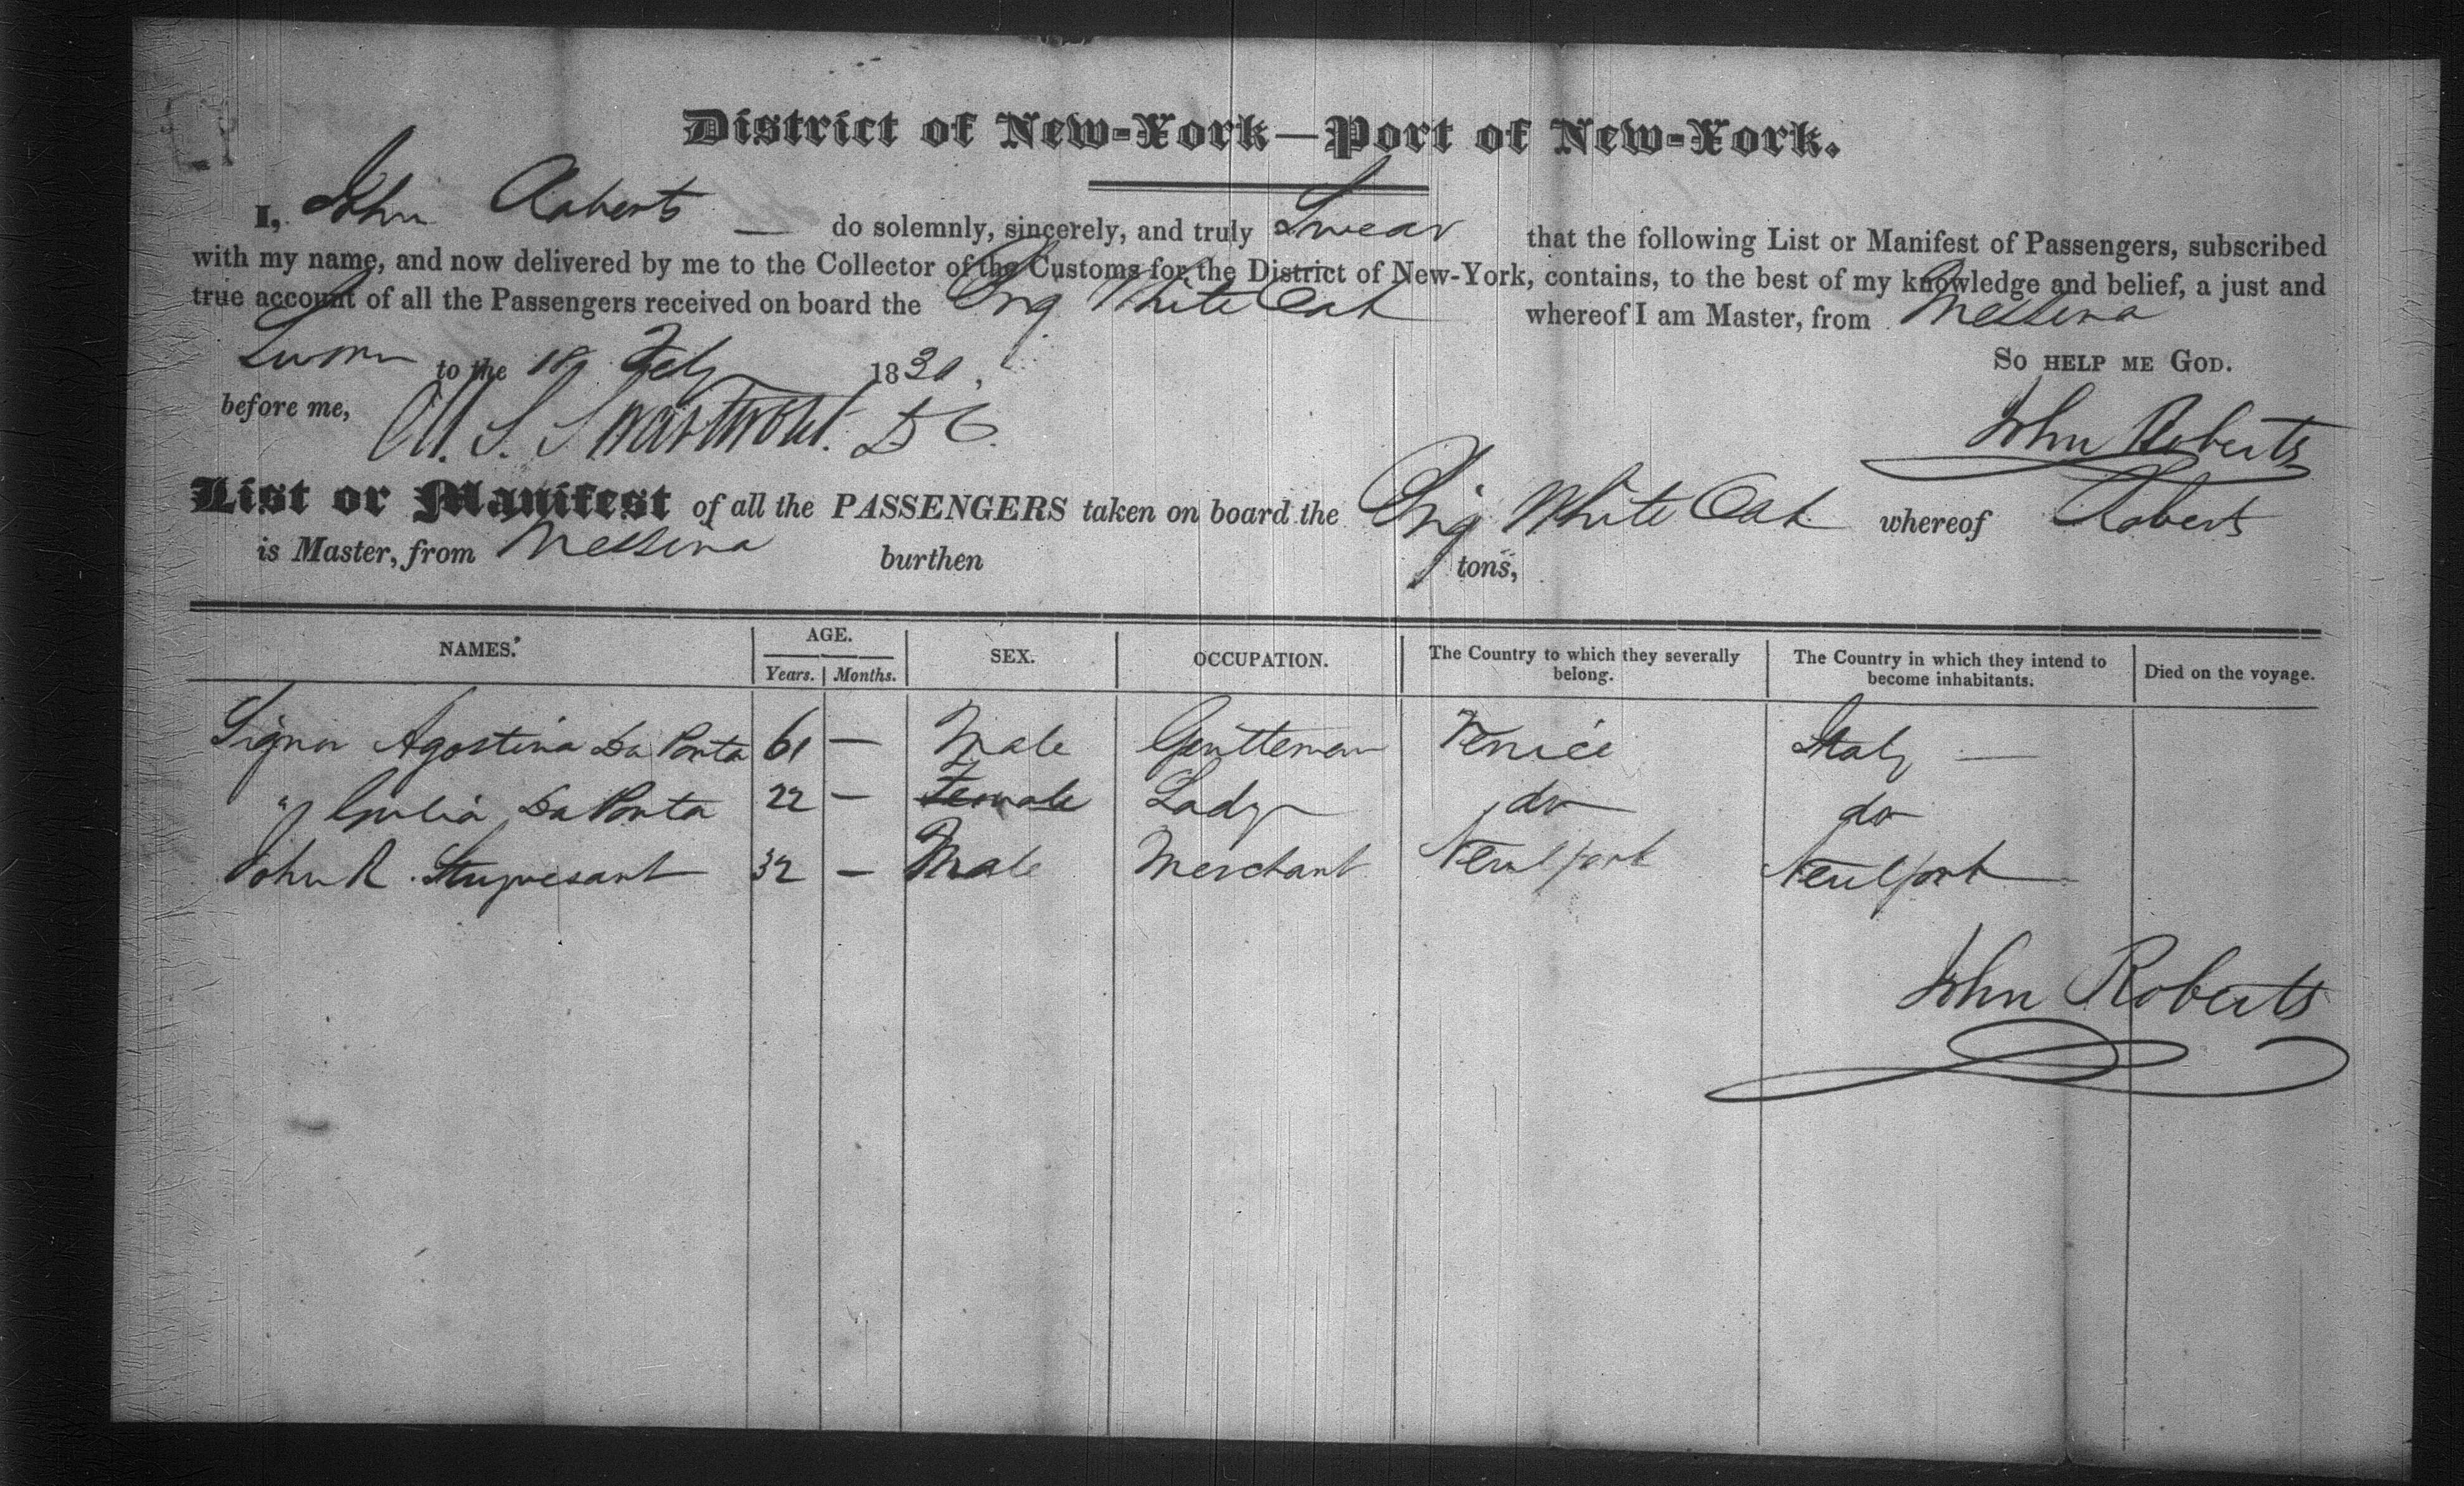 District of New-York—Port of New-York.
I, John Roberts — do solemnly, sincerely, and truly Swear that the following List or Manifest of Passengers, subscribed
with my name, and now delivered by me to the Collector of the Customs for the District of New-York, contains, to the best of my knowledge and belief, a just and
true account of all the Passengers received on board the Brig White Oak whereof I am Master, from Messina
Sworn to the 18 Feby 1830, So help me God.
before me, M. S. Swartwout. D C. John Roberts
List or Manifest of all the PASSENGERS taken on board the Brig White Oak whereof Roberts
is Master, from Messina burthen tons,
NAMES. AGE. SEX. OCCUPATION. The Country to which they severally belong. The Country in which they intend to become inhabitants. Died on the voyage.
Years. Months.
Signor Agostina Da Ponta 61 — Male Gentleman Venice Italy —
" Giulia Da Ponta 22 — Female Lady do do
John R. Stuyvesant 32 — Male Merchant New York New York
John Roberts